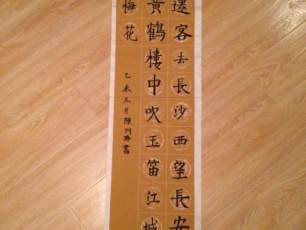 遷客去長沙西望長安
黃鶴樓中吹玉笛江城
梅花
乙未九月陳書